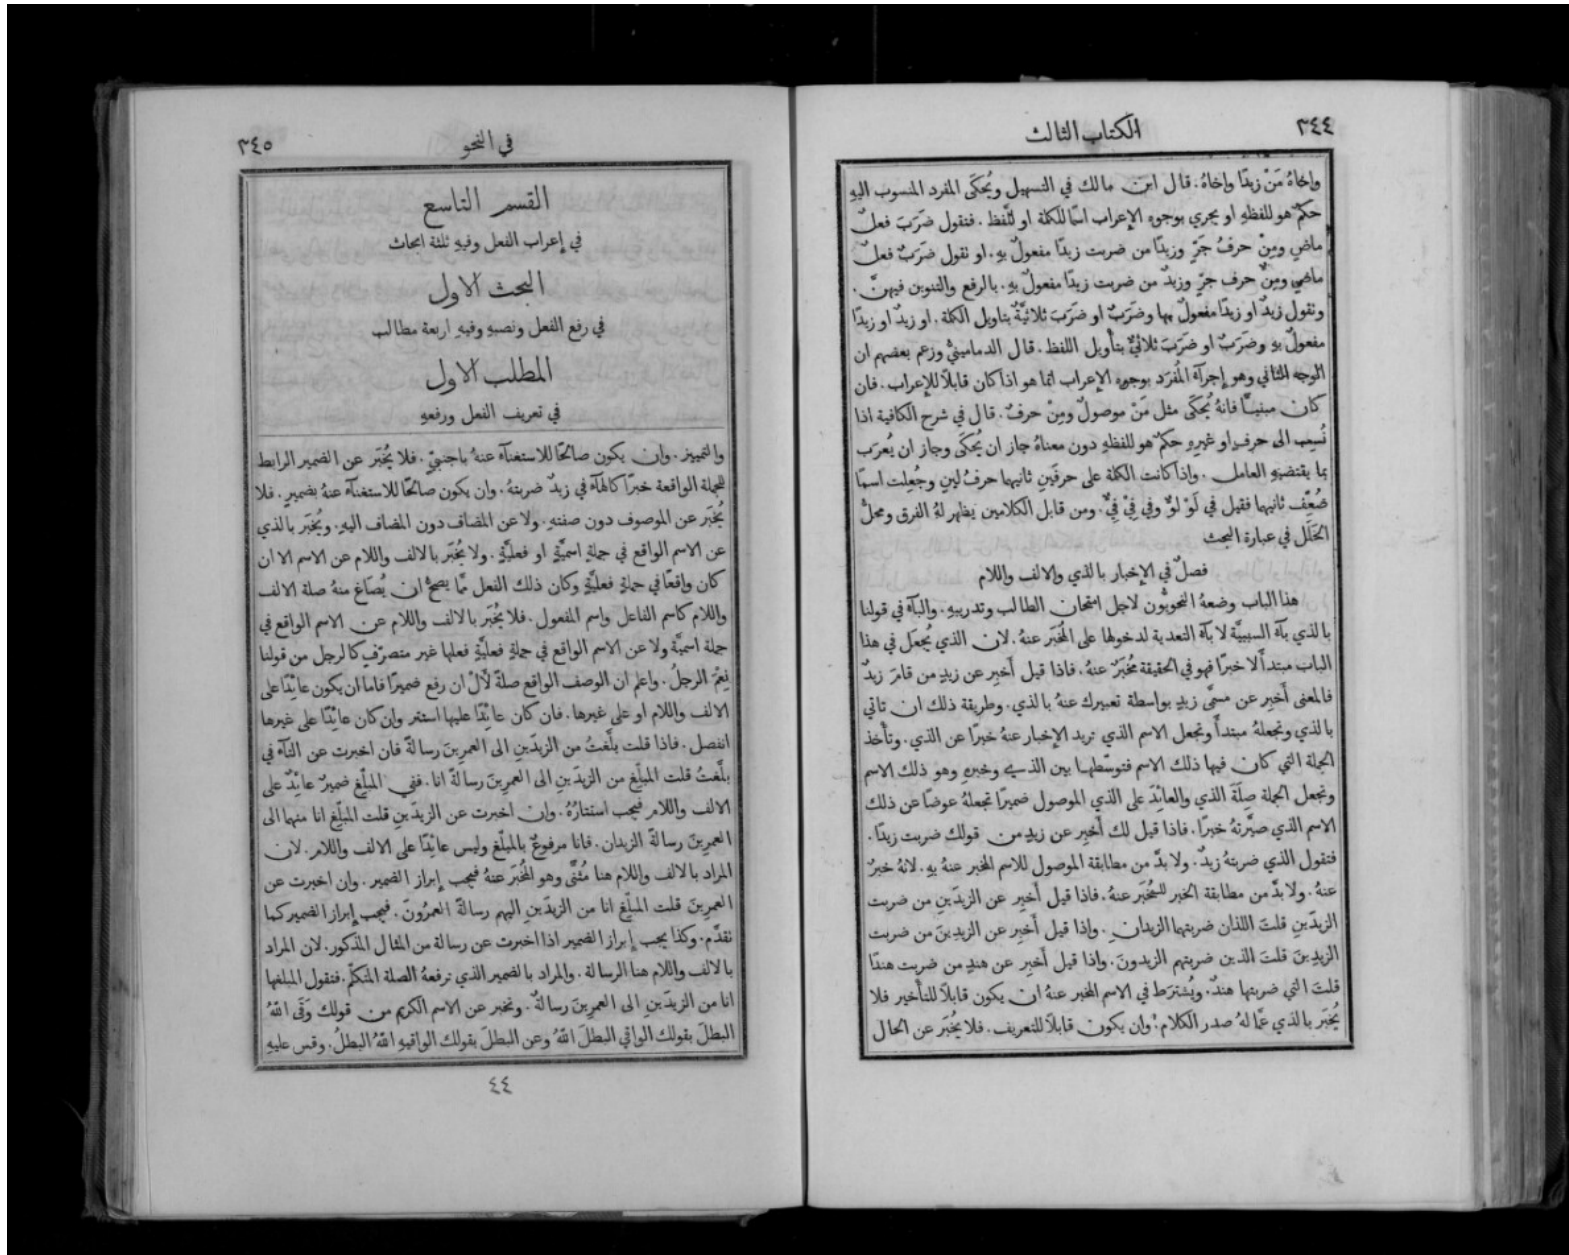 ٣٤٤
الكتاب الثالث
واخاهُ مَنْ زيدًا واخاهُ. قال ابن مالك في التسهيل ويُحكَى المفرد المنسوب اليهِ
حكمٌ هو للفظهِ او يجري بوجوه الإعراب اسمًا للكلمة او للَّفظ. فتقول ضَرَبَ فعلٌ
ماضٍ ومِنْ حرفُ جَرٍّ وزيدًا من ضربت زيدًا مفعولٌ بهِ. او نقول ضَرَبٌ فعلٌ
ماضٍ ومِنٌ حرف جرٍّ وزيدٌ من ضربت زيدًا مفعولٌ بهِ. بالرفع والتنوين فيهنَّ.
ونقول زيدٌ او زيدًا مفعولٌ بها وضَرَبٌ او ضَرَبَ ثلاثيَّةٌ بتاويل الكلمة. او زيدٌ او زيدًا
مفعولٌ بهِ وضَرَبٌ او ضَرَبَ ثلاثيٌّ بتأويل اللفظ. قال الدمامينيُّ وزعم بعضهم ان
الوجه الثاني وهو إجرآء المُفرَد بوجوه الإعراب انما هو اذا كان قابلاً للإعراب. فان
كان مبنيًّا فانهُ يُحكَى مثل مَنْ موصولٌ ومِنْ حرفٌ. قال في شرح الكافية اذا
نُسِب الى حرفٍ او غيرهِ حكمٌ هو للفظهِ دون معناهُ جاز ان يُحكَى وجاز ان يُعرَب
بما يقتضيهِ العامل. واذا كانت الكلمة على حرفَينِ ثانيهما حرفُ لينٍ وجُعِلت اسمًا
ضُعِّف ثانيهما فقيل في لَوْ لوٌّ وفي فِيْ فِيٌّ. ومن قابل الكلامين يظهر لهُ الفرق ومحلُّ
الخَلَل في عبارة البحث
فصلٌ في الإخبار بالذي والالف واللام
هذا الباب وضعهُ النحويُّون لاجل امتحان الطالب وتدريبهِ. والبآء في قولنا
بالذي بآء السببيَّة لا بآء التعدية لدخولها على المُخبَر عنهُ. لان الذي يُجعَل في هذا
الباب مبتدأً لا خبرًا فهو في الحقيقة مُخبَرٌ عنهُ. فاذا قيل أَخبِر عن زيدٍ من قامَ زيدٌ
فالمعنى أَخبِر عن مسمَّى زيدٍ بواسطة تعبيرك عنهُ بالذي. وطريقة ذلك ان تاتي
بالذي وتجعلهُ مبتدأً وتجعل الاسم الذي تريد الإخبار عنهُ خبرًا عن الذي. وتأخذ
الجملة التي كان فيها ذلك الاسم فتوسّطها بين الذي وخبرهِ وهو ذلك الاسم
وتجعل الجملة صِلَة الذي والعائِدَ على الذي الموصول ضميرًا تجعلهُ عوضًا عن ذلك
الاسم الذي صيَّرتهُ خبرًا. فاذا قيل لك أَخبِر عن زيدٍ من قولك ضربت زيدًا.
فتقول الذي ضربتهُ زيدٌ. ولا بدَّ من مطابقة الموصول للاسم المخبر عنهُ بهِ. لانهُ خبرٌ
عنهُ. ولا بدَّ من مطابقة الخبر للمُخبَر عنهُ. فاذا قيل أَخبِر عن الزيدَينِ من ضربت
الزيدَينِ قلتَ اللذان ضربتهما الزيدانِ. واذا قيل أَخبِر عن الزيدِينَ من ضربت
الزيدِينَ قلتَ الذين ضربتهم الزيدونَ. واذا قيل أَخبِر عن هندٍ من ضربت هندًا
قلتَ التي ضربتها هندٌ. ويُشترَط في الاسم المخبر عنهُ ان يكون قابلاً للتأخير فلا
يُخبَر بالذي عمَّا لهُ صدر الكلام. وان يكون قابلاً للتعريف. فلا يُخبَر عن الحال
في النحو
٣٤٥
القسم التاسع
في إعراب الفعل وفيهِ ثلثة ابحاث
البحث الاول
في رفع الفعل ونصبهِ وفيهِ اربعة مطالب
المطلب الاول
في تعريف الفعل ورفعهِ
والتمييز. وان يكون صالحًا للاستغنآء عنهُ باجنبيٍّ. فلا يُخبَر عن الضمير الرابط
للجملة الواقعة خبرًا كالهآء في زيدٌ ضربتهُ. وان يكون صالحًا للاستغنآء عنهُ بضميرٍ. فلا
يُخبَر عن الموصوف دون صفتهِ. ولا عن المضاف دون المضاف اليهِ. ويُخبَر بالذي
عن الاسم الواقع في جملةٍ اسميَّةٍ او فعليَّةٍ. ولا يُخبَر بالالف واللام عن الاسم الا ان
كان واقعًا في جملةٍ فعليَّةٍ وكان ذلك الفعل ممَّا يصحُّ ان يُصاغ منهُ صلة الالف
واللام كاسم الفاعل واسم المفعول. فلا يُخبَر بالالف واللام عن الاسم الواقع في
جملة اسميَّة ولا عن الاسم الواقع في جملةٍ فعليَّةٍ فعلها غير متصرّفٍ كالرجل من قولنا
نِعمَ الرجلُ. واعلم ان الوصف الواقع صلةً لأَلْ ان رفع ضميرًا فاما ان يكون عائِدًا على
الالف واللام او على غيرها. فان كان عائِدًا عليها استتر وان كان عائِدًا على غيرها
انفصل. فاذا قلت بلَّغتُ من الزيدَينِ الى العمرِينَ رسالةً فان اخبرت عن التآء في
بلَّغتُ قلت المبلِّغ من الزيدَينِ الى العمرِينَ رسالةً انا. ففي المبلِّغ ضميرٌ عائِدٌ على
الالف واللام فيجب استتارُهُ. وان اخبرت عن الزيدَينِ قلت المبلِّغ انا منهما الى
العمرِينَ رسالةً الزيدان. فانا مرفوعٌ بالمبلِّغ وليس عائِدًا على الالف واللام. لان
المراد بالالف واللام هنا مُثنًّى وهو المُخبَر عنهُ فيجب إبراز الضمير. وان اخبرت عن
العمرِينَ قلت المبلِّغ انا من الزيدَينِ اليهم رسالةً العمرُونَ. فيجب إبراز الضمير كما
تقدَّم. وكذا يجب إبراز الضمير اذا اخبرت عن رسالة من المثال المذكور. لان المراد
بالالف واللام هنا الرسالة. والمراد بالضمير الذي ترفعهُ الصلة المتكلّم. فتقول المبلغها
انا من الزيدَينِ الى العمرِينَ رسالةٌ. ونخبر عن الاسم الكريم من قولك وَقَى اللهُ
البطلَ بقولك الواقي البطلَ اللهُ وعن البطلَ بقولك الواقيهِ اللهُ البطلُ. وقس عليهِ
٤٤